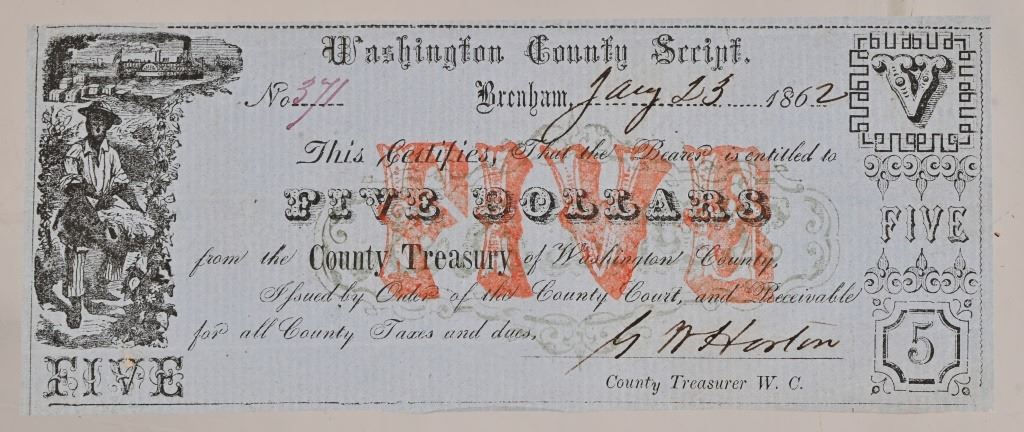 Washington County Script.
No 371 Brenham, Jany 23 1862
This Certifies, That the Bearer is entitled to
FIVE DOLLARS
from the County Treasury of Washington County
Issued by Order of the County Court, and Receivable
for all County Taxes and dues,
G W Horton
County Treasurer W. C.
FIVE
FIVE
V
FIVE
5